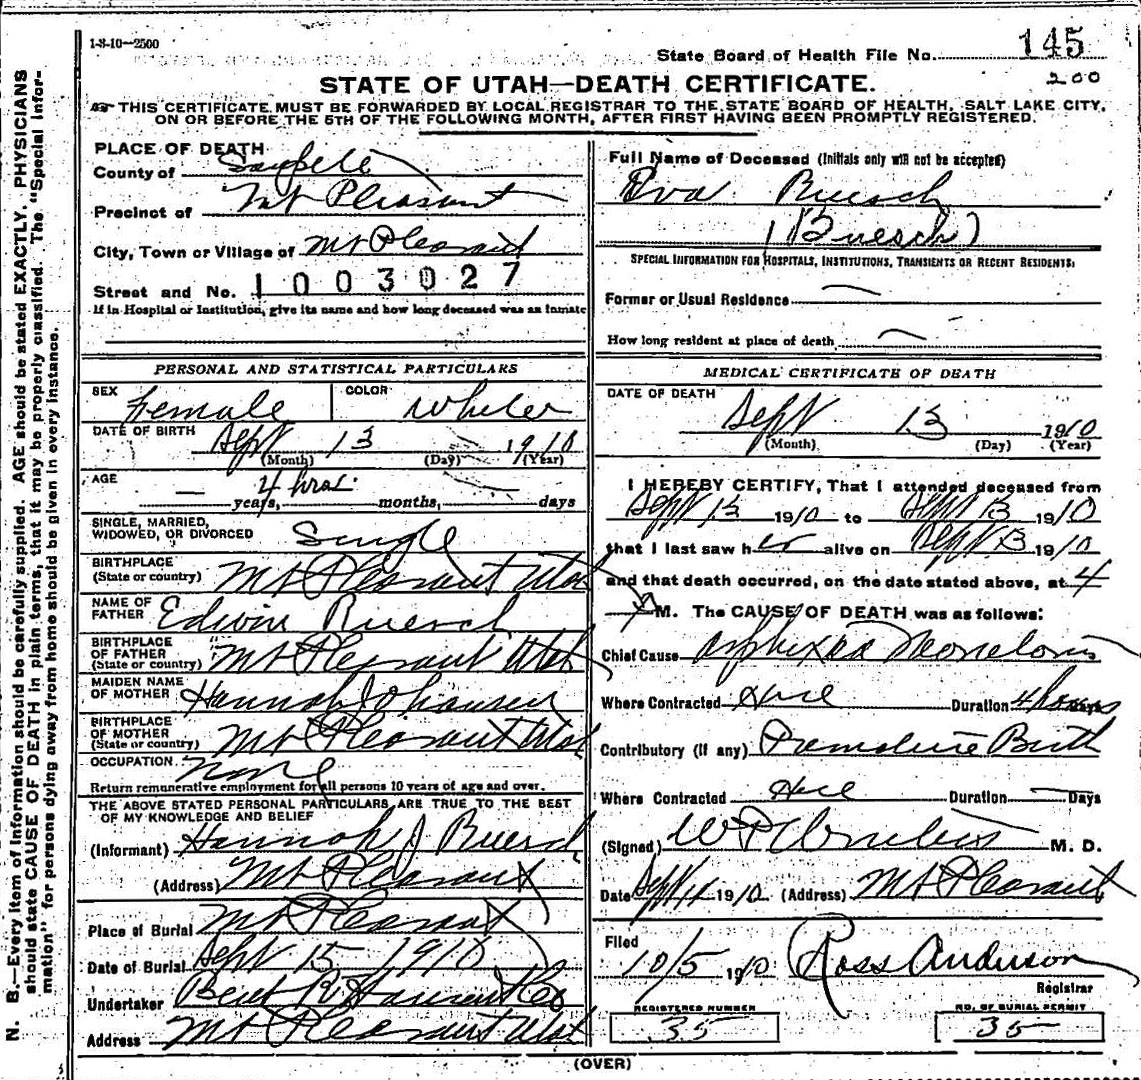 1-8-10—2500
State Board of Health File No. 145
200
STATE OF UTAH—DEATH CERTIFICATE.
THIS CERTIFICATE MUST BE FORWARDED BY LOCAL REGISTRAR TO THE STATE BOARD OF HEALTH, SALT LAKE CITY,
ON OR BEFORE THE 5TH OF THE FOLLOWING MONTH, AFTER FIRST HAVING BEEN PROMPTLY REGISTERED.
N. B.—Every item of information should be carefully supplied. AGE should be stated EXACTLY. PHYSICIANS
should state CAUSE OF DEATH in plain terms, that it may be properly classified. The "Special Infor-
mation" for persons dying away from home should be given in every instance.
PLACE OF DEATH
County of Sanpete
Precinct of Mt Pleasant
City, Town or Village of Mt Pleasant
Street and No. 1003027
If in Hospital or Institution, give its name and how long deceased was an inmate
PERSONAL AND STATISTICAL PARTICULARS
SEX Female COLOR White
DATE OF BIRTH Sept 13 1910
(Month) (Day) (Year)
AGE — years, 4 hrs. months, days
SINGLE, MARRIED,
WIDOWED, OR DIVORCED Single
BIRTHPLACE
(State or country) Mt Pleasant Utah
NAME OF
FATHER Edwin Ruesch
BIRTHPLACE
OF FATHER
(State or country) Mt Pleasant Utah
MAIDEN NAME
OF MOTHER Hannah Johansen
BIRTHPLACE
OF MOTHER
(State or country) Mt Pleasant Utah
OCCUPATION. None
Return remunerative employment for all persons 10 years of age and over.
THE ABOVE STATED PERSONAL PARTICULARS ARE TRUE TO THE BEST
OF MY KNOWLEDGE AND BELIEF
(Informant) Hannah J Buesch
(Address) Mt Pleasant
Place of Burial Mt Pleasant
Date of Burial Sept 15 1910
Undertaker
Address Mt Pleasant Utah
Full Name of Deceased (Initials only will not be accepted)
Eva Ruesch
(Buesch)
SPECIAL INFORMATION FOR HOSPITALS, INSTITUTIONS, TRANSIENTS OR RECENT RESIDENTS:
Former or Usual Residence —
How long resident at place of death —
MEDICAL CERTIFICATE OF DEATH
DATE OF DEATH
Sept 13 1910
(Month) (Day) (Year)
I HEREBY CERTIFY, That I attended deceased from
Sept 13 1910 to Sept 13 1910
that I last saw her alive on Sept 13 1910
and that death occurred, on the date stated above, at 4
M. The CAUSE OF DEATH was as follows:
Chief Cause Neonatorum
Where Contracted Here Duration 4 hours
Contributory (if any) Premature Birth
Where Contracted Here Duration — Days
(Signed) M. D.
Date Sept 1910 (Address) Mt Pleasant
Filed
10/5 1910 Ross Anderson
Registrar
REGISTERED NUMBER 35
NO. OF BURIAL PERMIT 35
(OVER)